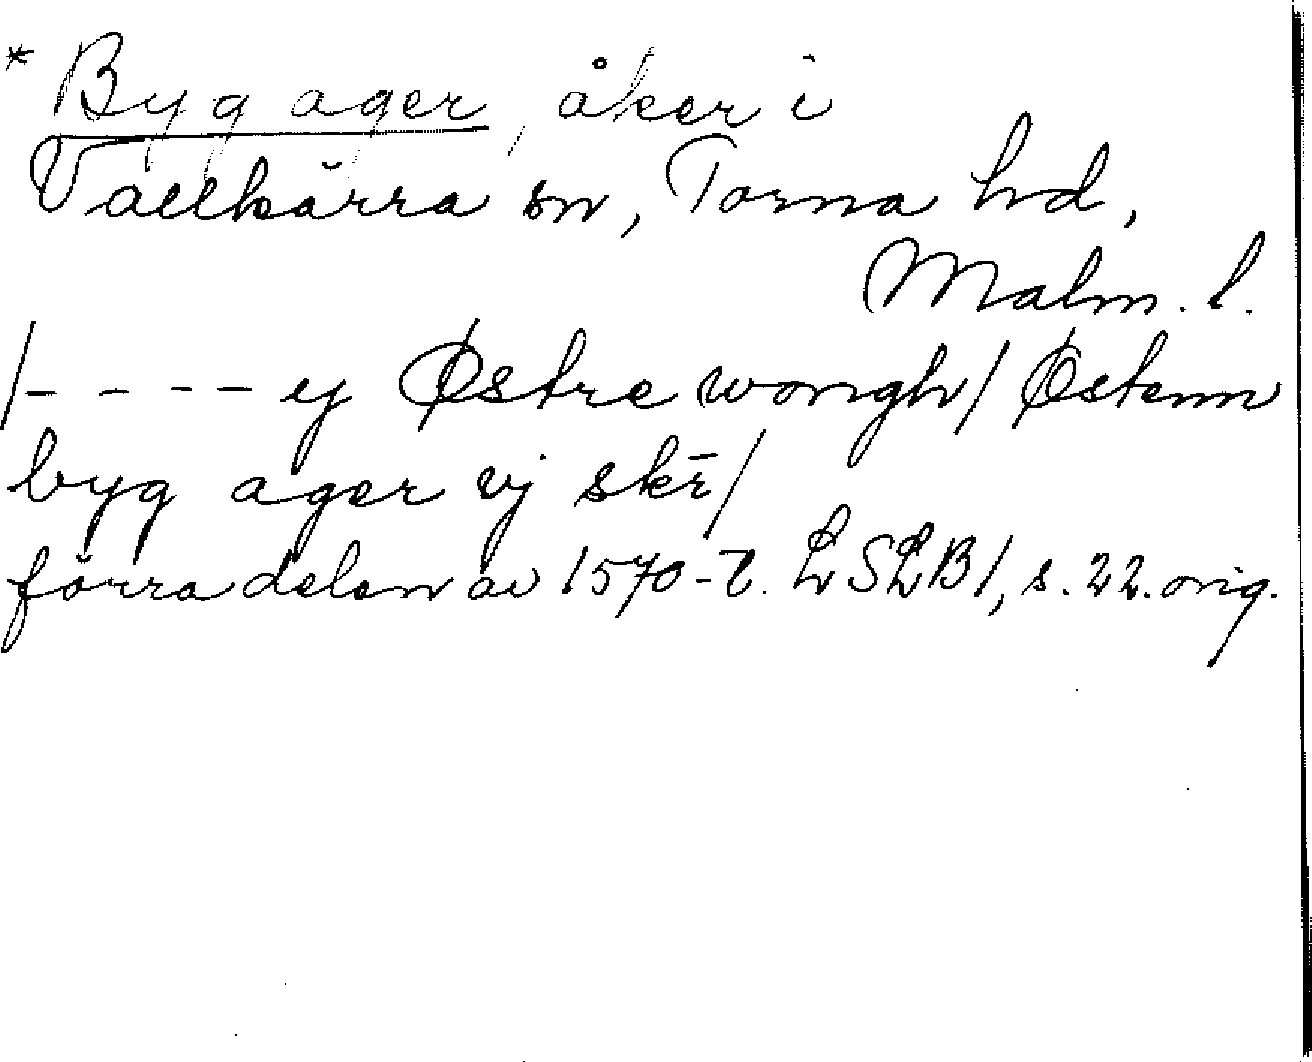 * Byg ager, åker i
Vallkärra sn, Torna hd,
Malm. l.
/- - - - ej Østre wongh/ Østenn
byg ager vj skr̄/
förra delen av 1570-t. LSLB1, s. 22. orig.